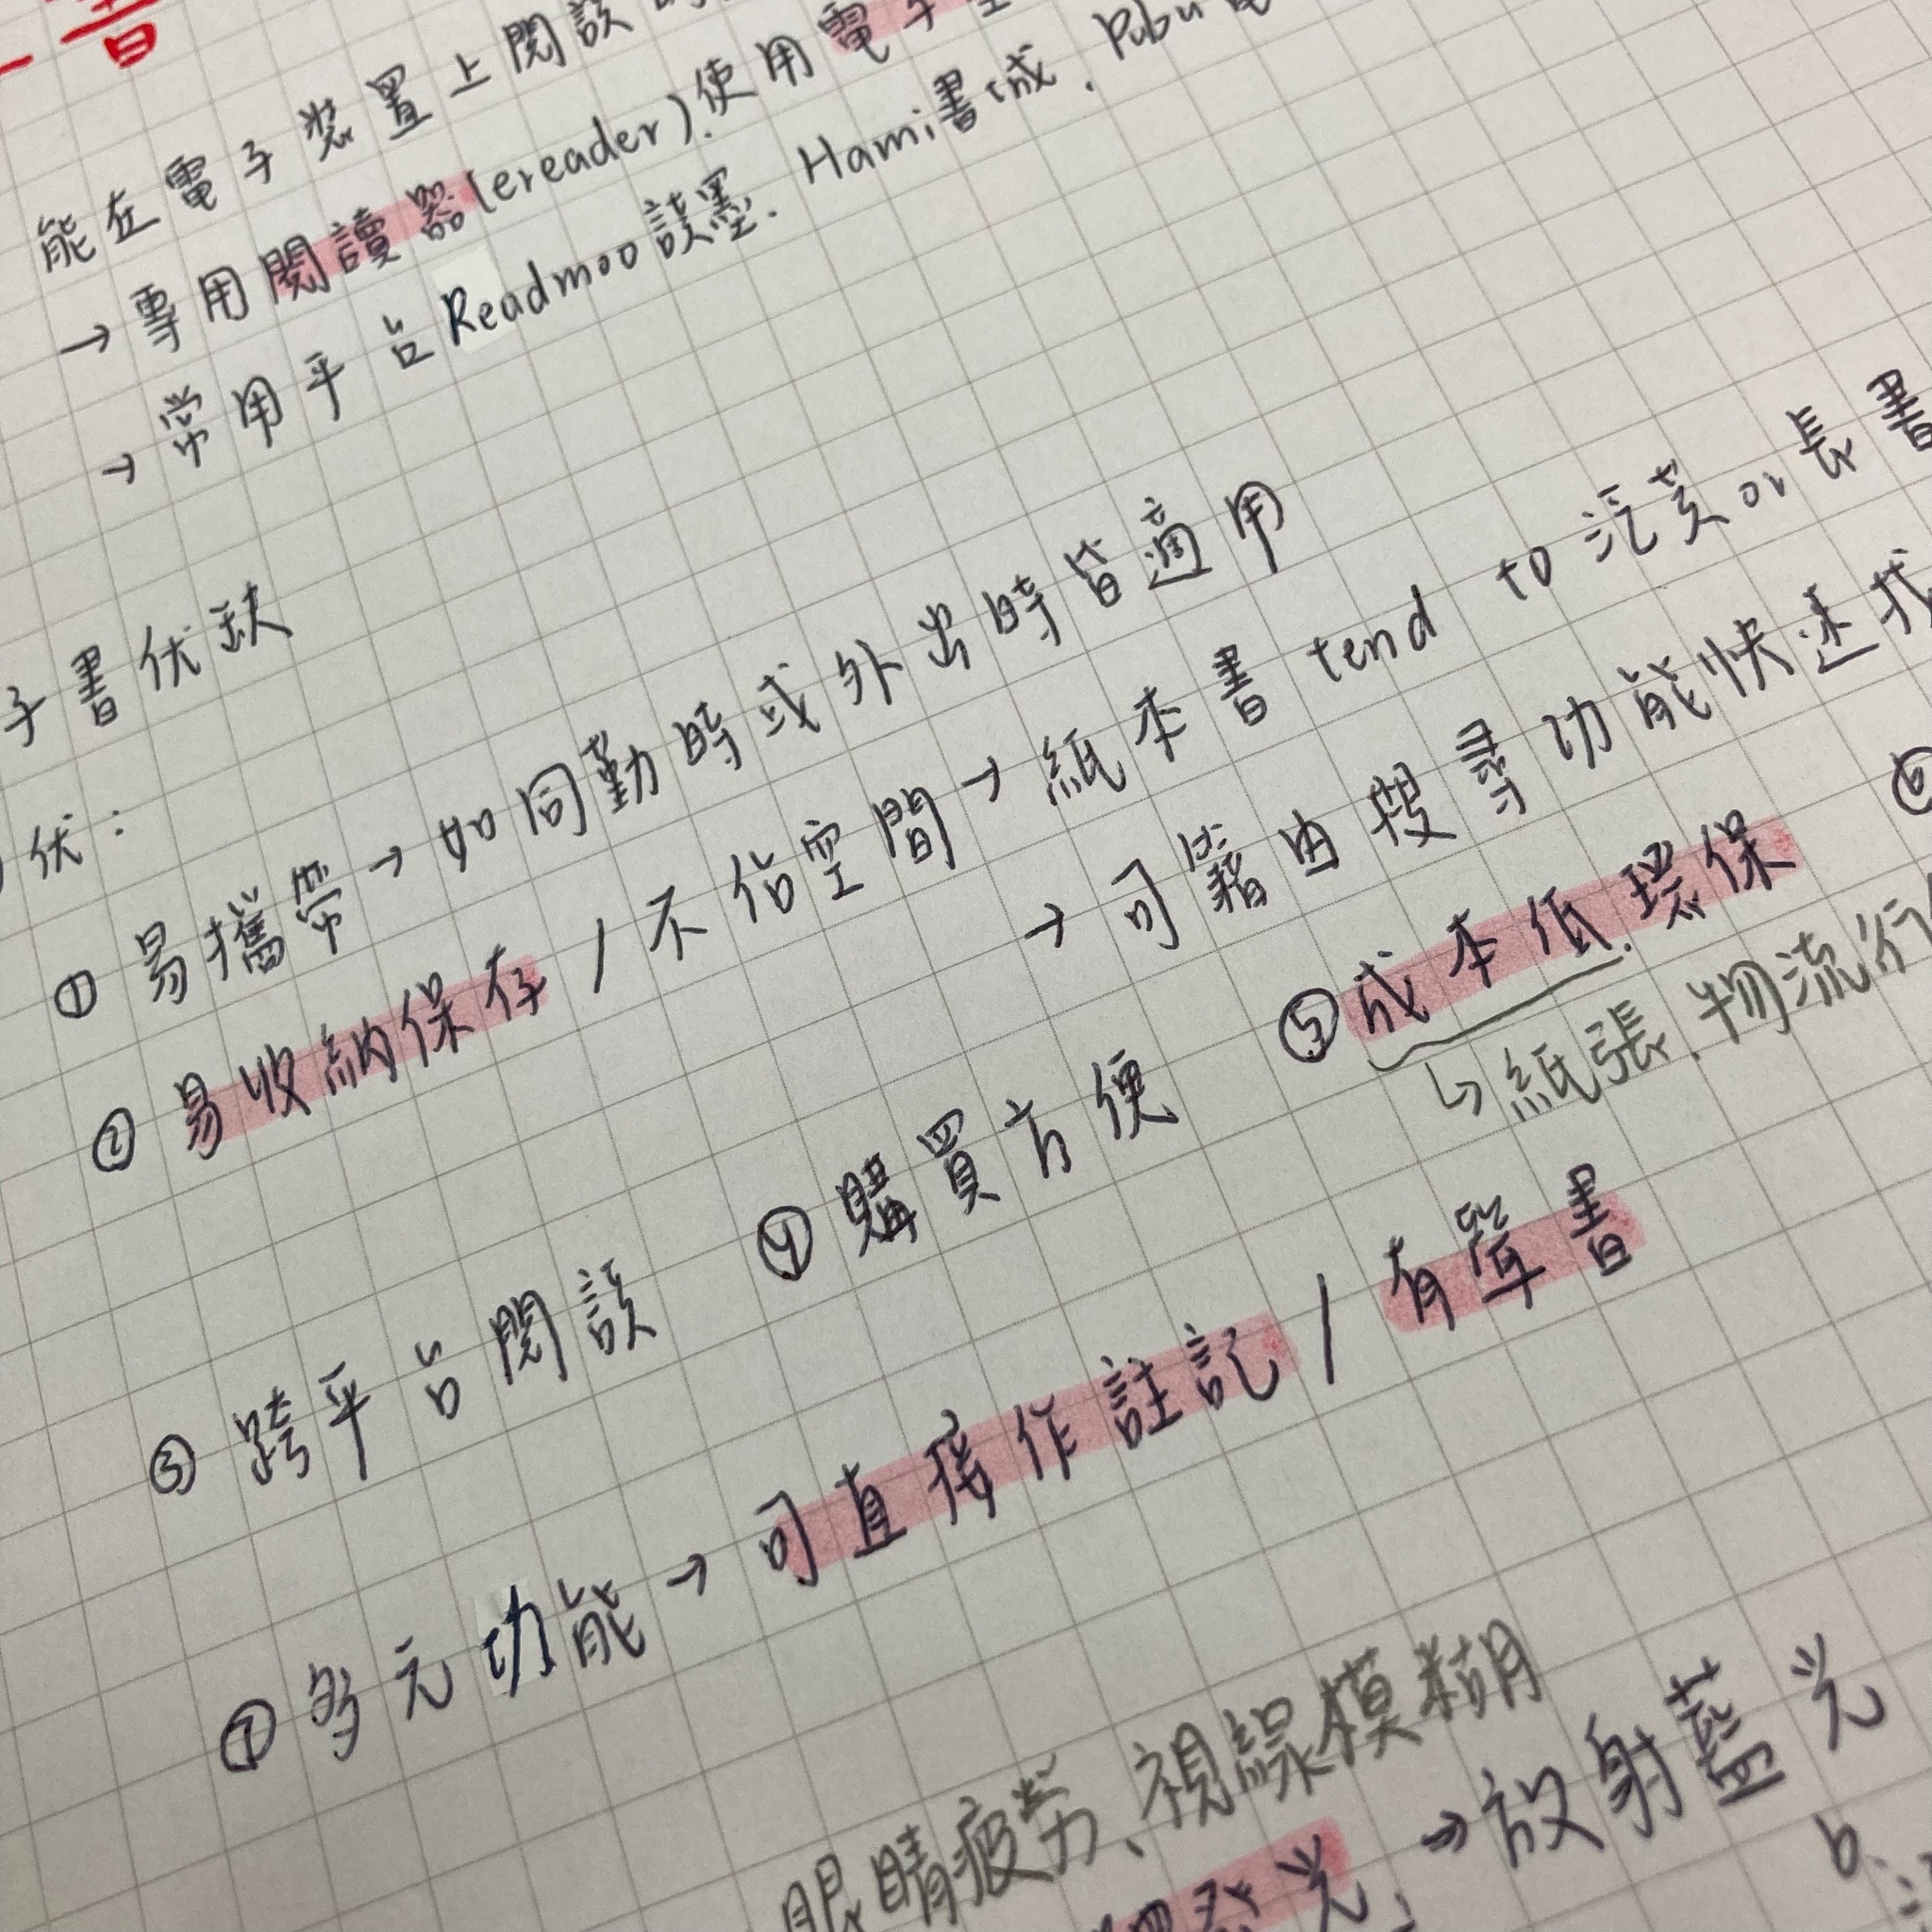 書
能在電子裝置上閱讀
→ 專用閱讀器(ereader).使用電子
→ 常用平台Readmoo讀墨. Hami書城. Pubu
子書优缺
优:
① 易攜帶→如同勤時或外出時皆適用
② 易收納保存/不佔空間→紙本書 tend to 泛黃or長書
→可籍由搜尋功能快速找
③ 跨平台閱讀 ④ 購買方便 ⑤成本低.環保 ⑥
↳紙張.物流行
⑦ 多元功能→可直接作註記/有聲書
眼睛疲勞、視線模糊
光. →放射藍光